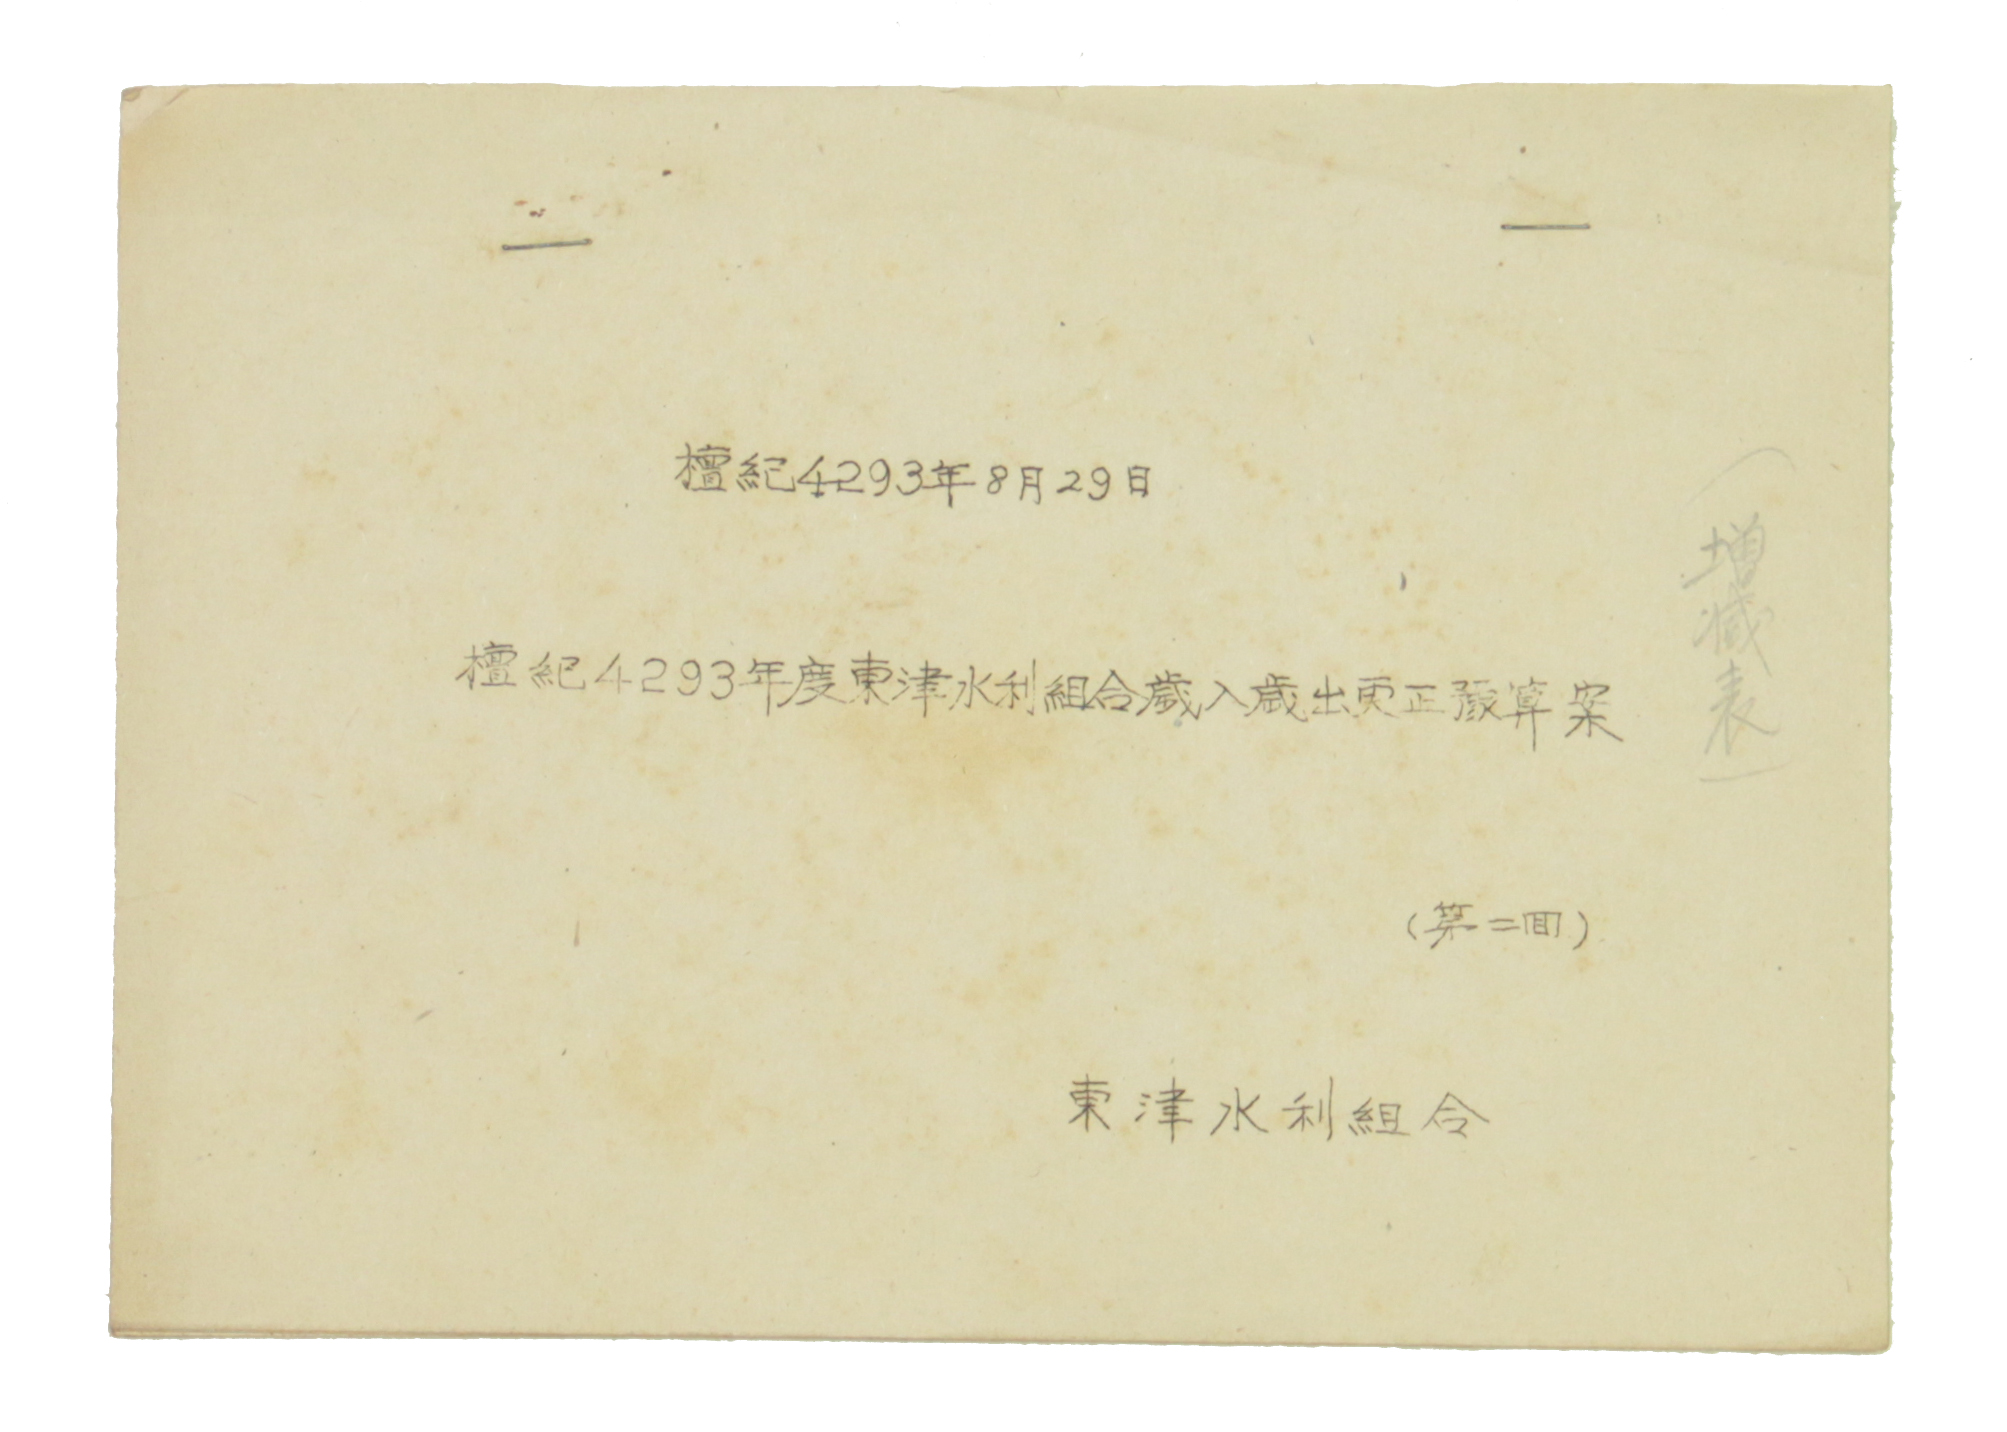 檀紀4293年8月29日
檀紀4293年度東津水利組合歲入歲出更正豫算案
(第二回)
東津水利組合
(增減表)